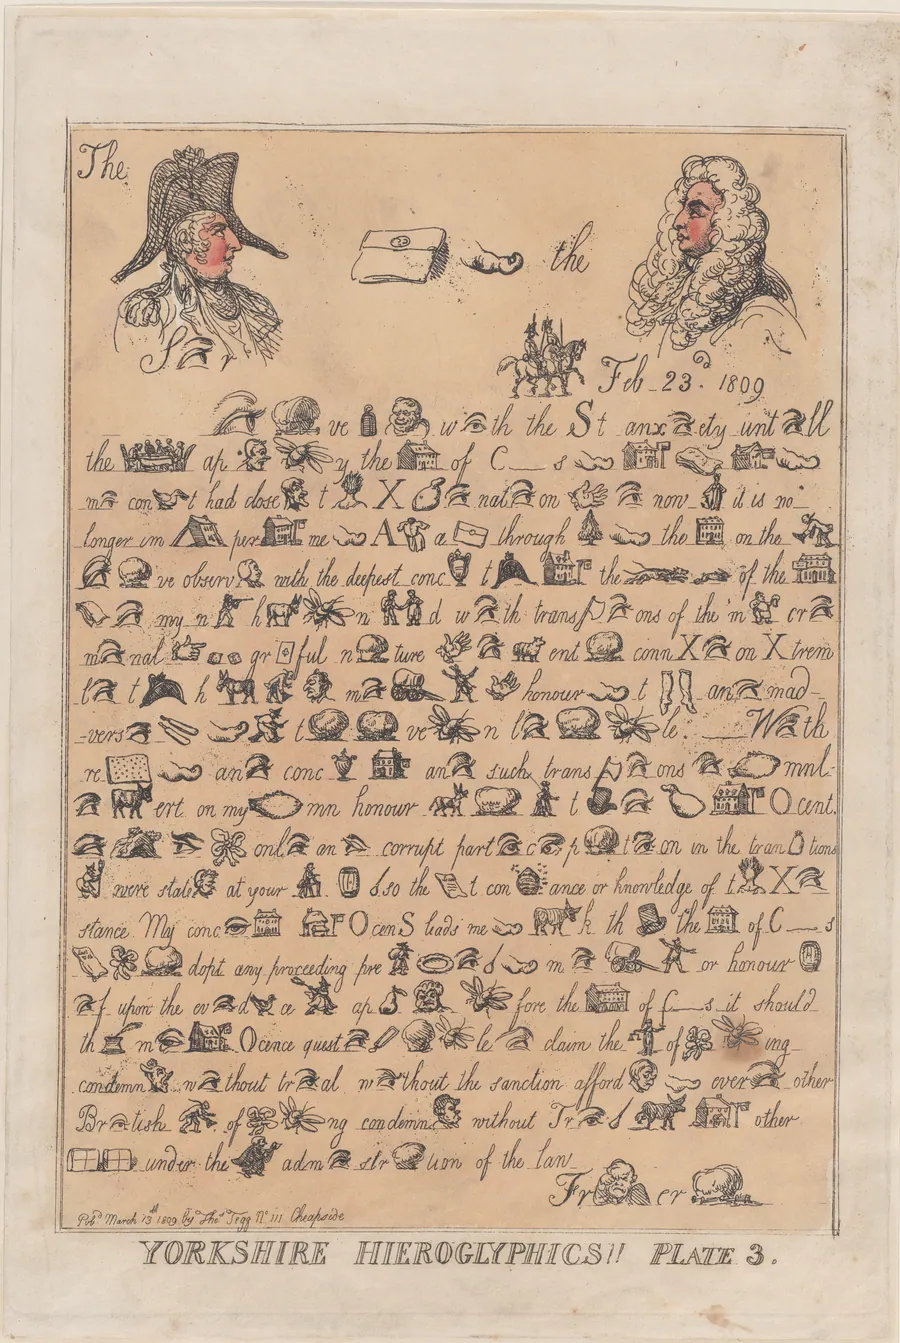 The
the
S r
Feb 23.d 1809
ve w th the St anx ety unt ll
the ap y the of C__s
m con t had close t X nat on now it is no
longer im per me A a through the on the
ve observ with the deepest conc t the of the
my n h n d w th trans ons of the m cr
m nal gr ful n ture ent conn X on X trem
l t h m honour t an mad-
-vers t ve n l le. __ W th
re an conc an such trans ons mnl-
ert on my mn honour t O cent.
onl an corrupt part c p t on in the tran tions
were state at your so the t con ance or knowledge of t X
stance My conc F O cen S leads me k th the of C__s
dopt any proceeding pre m or honour
f upon the ev d ce ap fore the of C__s it should
th m O cence quest le claim the of ing
condemn w thout tr al w thout the sanction afford ever other
Br tish of ng condemn without Tr other
under the adm str tion of the law
Fr er
Pub.d March 13th 1809 by Thos Tegg No 111 Cheapside
YORKSHIRE HIEROGLYPHICS!! PLATE 3.